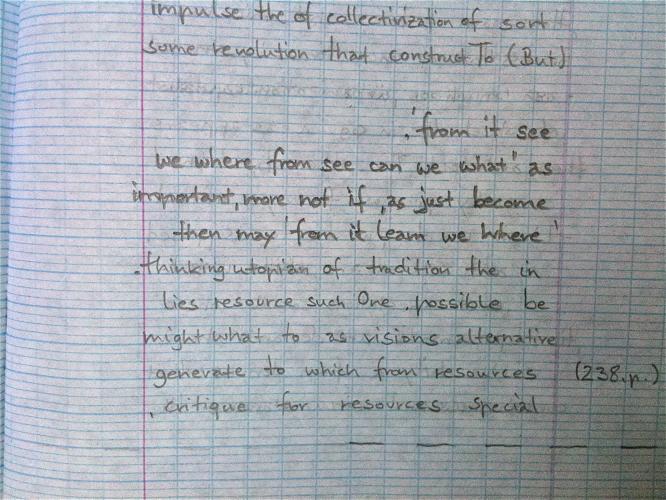 impulse the of collectivization of sort
some revolution that construct To (But)
. 'from it see
we where from see can we what' as
important, more not if , as just become
then may 'from it learn we where'
. thinking utopian of tradition the in
lies resource such One . possible be
might what to as visions alternative
generate to which from resources (238.p.)
, critique for resources special